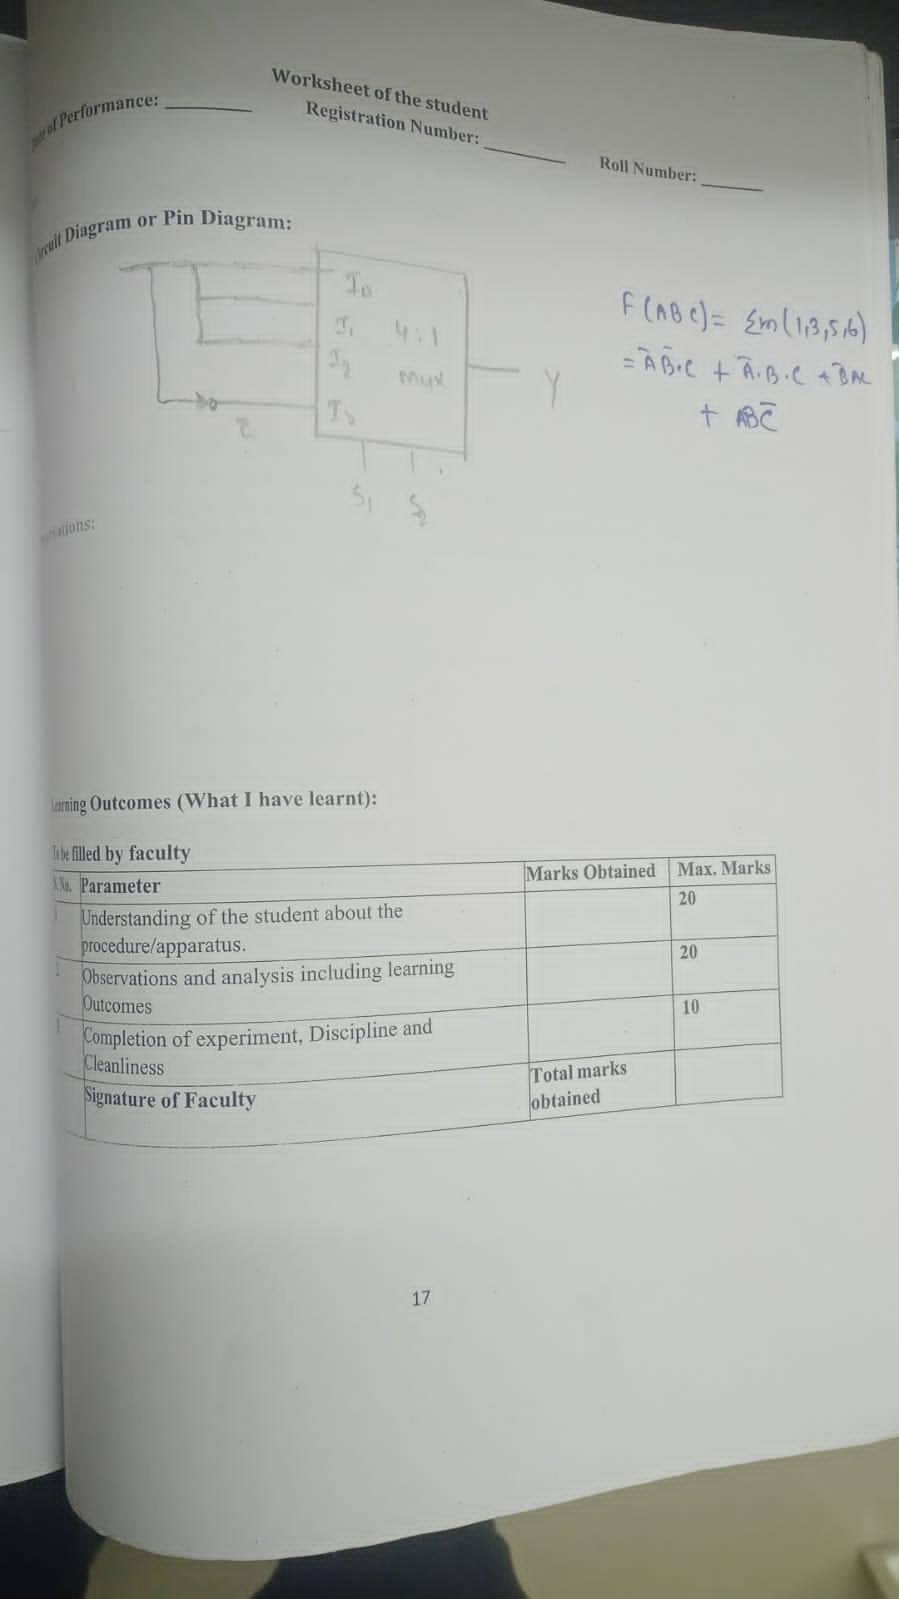 Worksheet of the student
of Performance: ________ Registration Number: ________ Roll Number: ________
Circuit Diagram or Pin Diagram:
I0
I1 4:1
I2 mux
I3
C̅
Y
S1 S2
F(ABC) = Σm(1,3,5,6)
= A̅B̅·C + A̅·B·C + B̅AC
+ ABC̅
Learning Outcomes (What I have learnt):
To be filled by faculty
S.No. Parameter Marks Obtained Max. Marks
1 Understanding of the student about the procedure/apparatus. 20
2 Observations and analysis including learning Outcomes 20
3 Completion of experiment, Discipline and Cleanliness 10
Signature of Faculty Total marks obtained
17